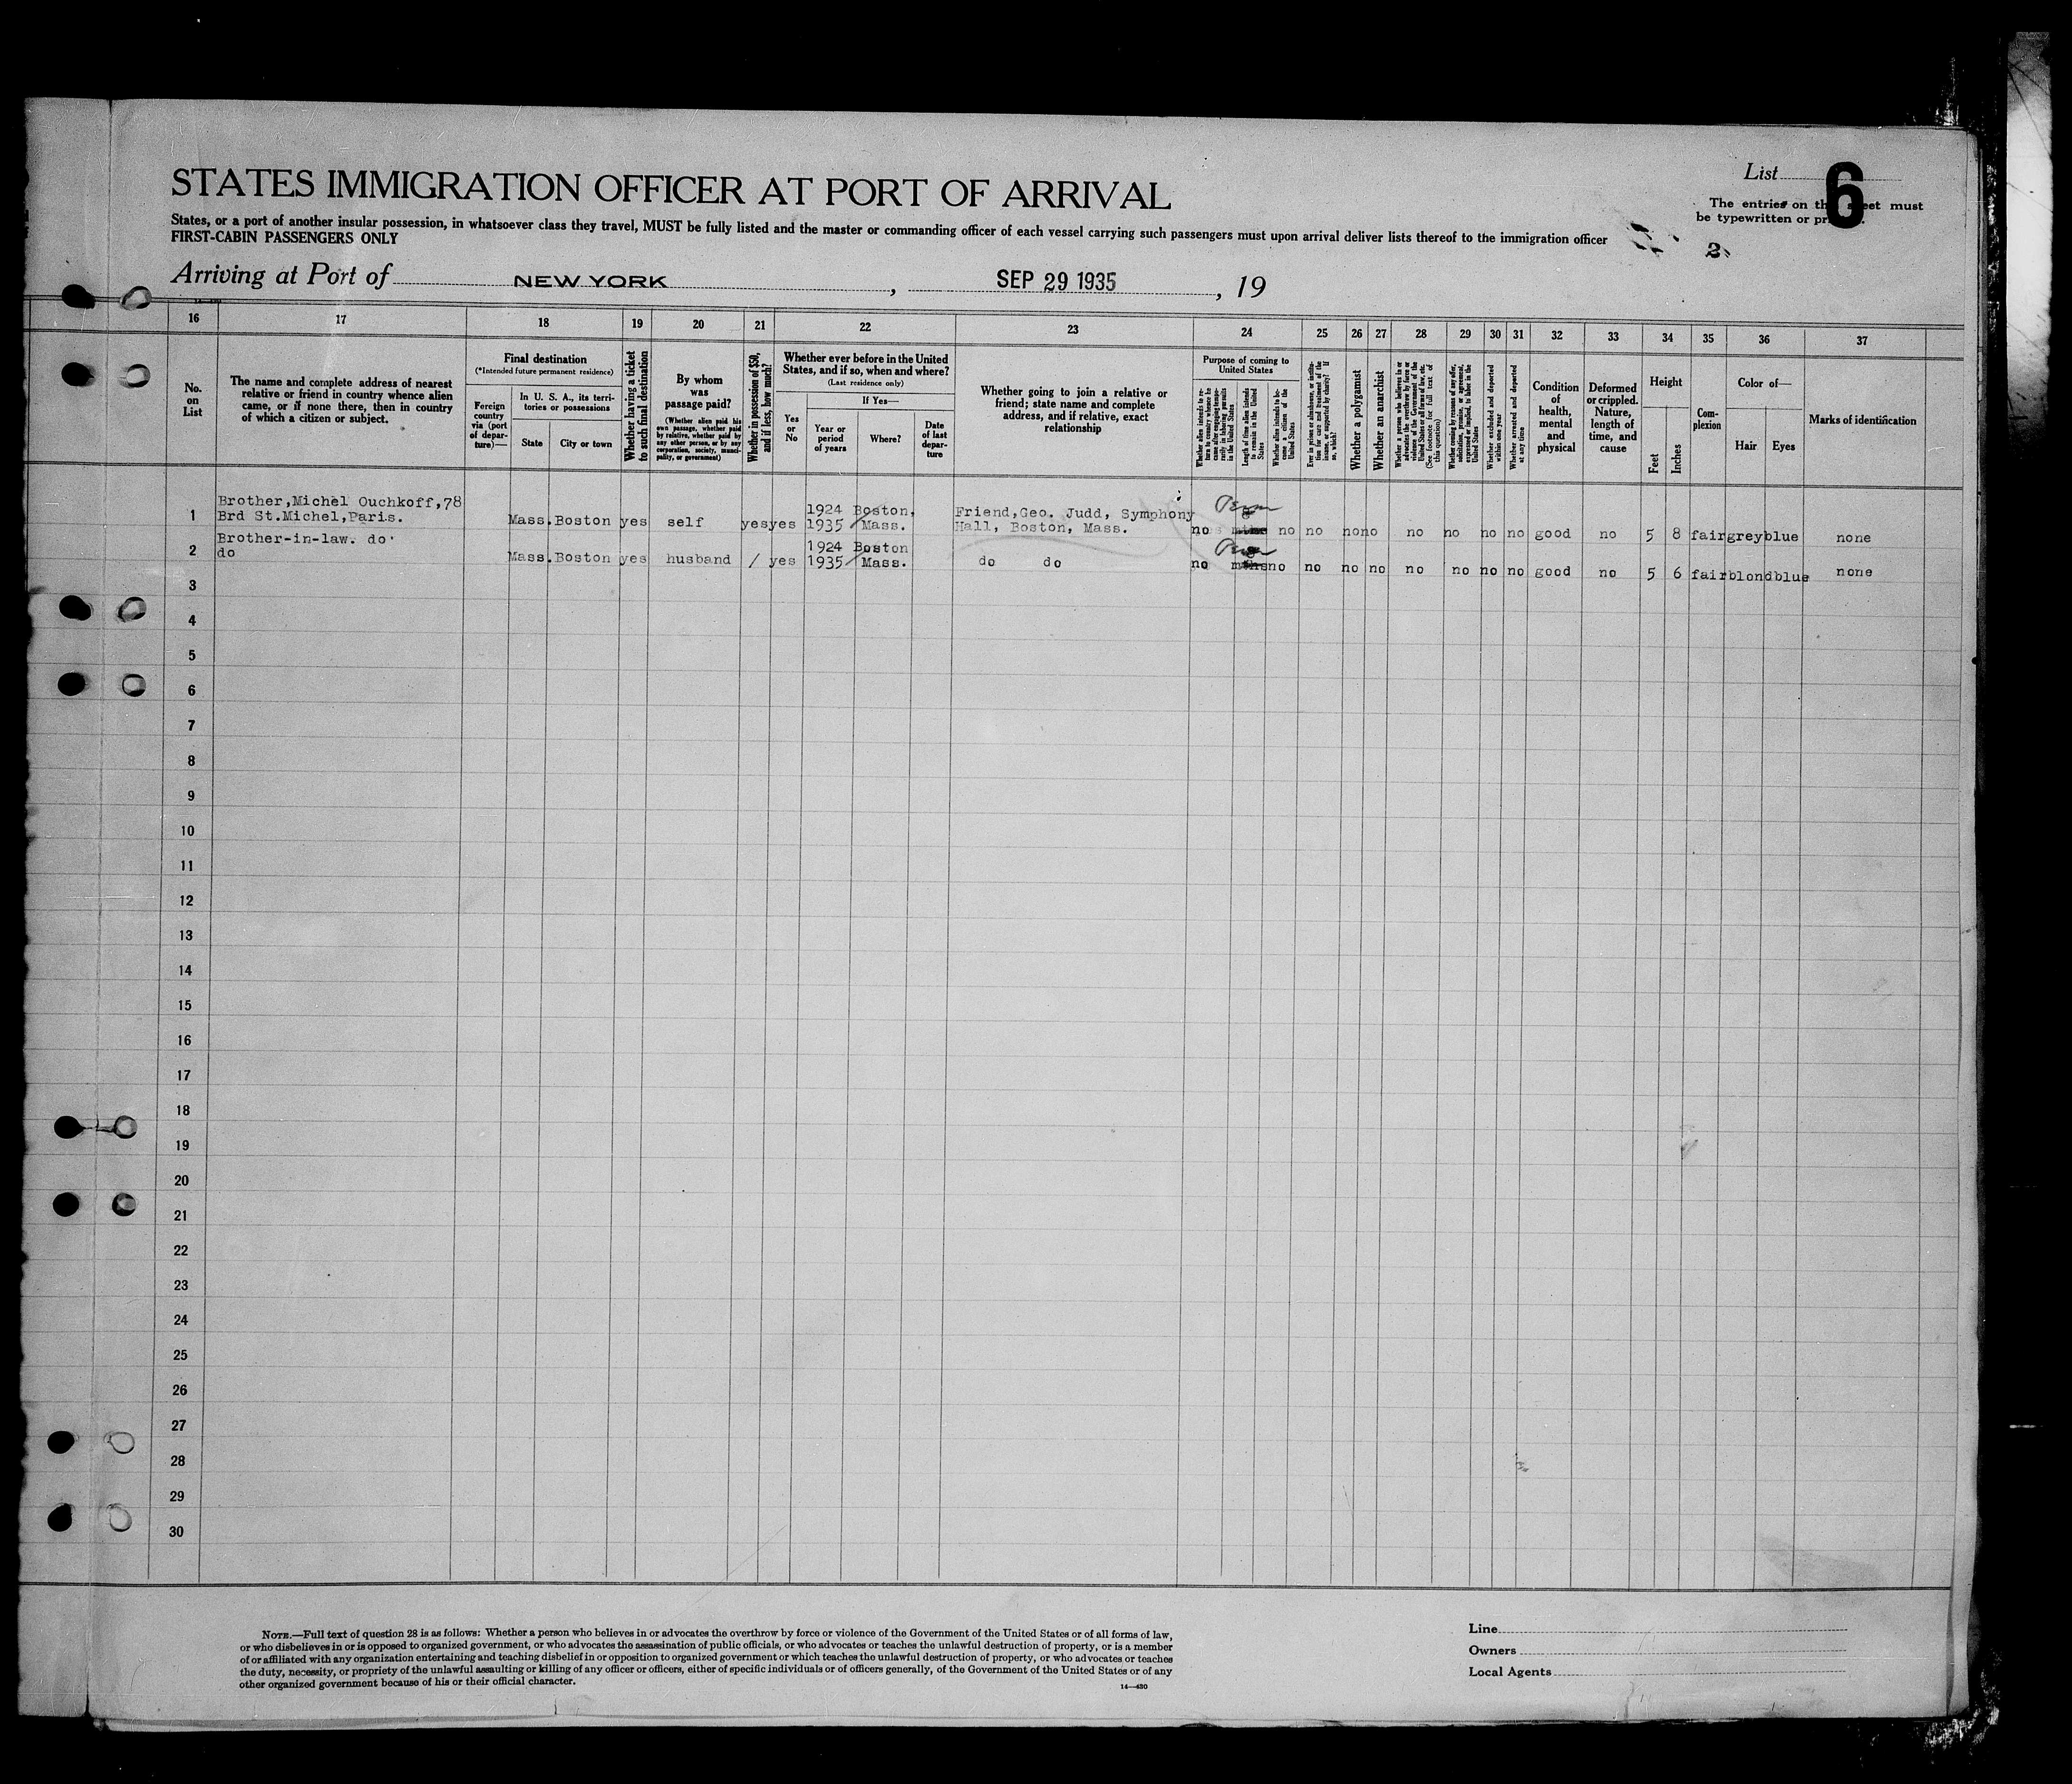 STATES IMMIGRATION OFFICER AT PORT OF ARRIVAL
List 6
The entries on this sheet must
be typewritten or printed.
States, or a port of another insular possession, in whatsoever class they travel, MUST be fully listed and the master or commanding officer of each vessel carrying such passengers must upon arrival deliver lists thereof to the immigration officer
FIRST-CABIN PASSENGERS ONLY
2
Arriving at Port of NEW YORK, SEP 29 1935, 19
16 17 18 19 20 21 22 23 24 25 26 27 28 29 30 31 32 33 34 35 36 37
No. on List
The name and complete address of nearest
relative or friend in country whence alien
came, or if none there, then in country
of which a citizen or subject.
Final destination
(*Intended future permanent residence)
Foreign country via (port of departure)—
In U. S. A., its territories or possessions
State
City or town
Whether having a ticket to such final destination
By whom was passage paid?
(Whether alien paid his own passage, whether paid by relative, whether paid by any other person, or by any corporation, society, municipality, or government)
Whether in possession of $50, and if less, how much?
Whether ever before in the United
States, and if so, when and where?
(Last residence only)
Yes or No
If Yes—
Year or period of years
Where?
Date of last departure
Whether going to join a relative or
friend; state name and complete
address, and if relative, exact
relationship
Purpose of coming to United States
Whether alien intends to return to country whence he came after engaging temporarily in laboring pursuits in the United States
Length of time alien intends to remain in the United States
Whether alien intends to become a citizen of the United States
Ever in prison or almshouse, or institution for care and treatment of the insane, or supported by charity? If so, which?
Whether a polygamist
Whether an anarchist
Whether a person who believes in or advocates the overthrow by force or violence of the Government of the United States or all forms of law, etc. (See footnote for full text of this question)
Whether coming by reason of any offer, solicitation, promise, or agreement, expressed or implied, to labor in the United States
Whether excluded and deported within one year
Whether arrested and deported at any time
Condition of health, mental and physical
Deformed or crippled. Nature, length of time, and cause
Height
Feet
Inches
Complexion
Color of—
Hair
Eyes
Marks of identification
Brother,Michel Ouchkoff,78
1 Brd St.Michel,Paris. Mass. Boston yes self yes yes 1924 1935 Boston, Mass. Friend,Geo. Judd, Symphony Hall, Boston, Mass. no no no no no no no no no good no 5 8 fair grey blue none
Brother-in-law. do
2 do Mass. Boston yes husband / yes 1924 1935 Boston Mass. do do no no no no no no no no no good no 5 6 fair blond blue none
3
4
5
6
7
8
9
10
11
12
13
14
15
16
17
18
19
20
21
22
23
24
25
26
27
28
29
30
NOTE.—Full text of question 28 is as follows: Whether a person who believes in or advocates the overthrow by force or violence of the Government of the United States or of all forms of law,
or who disbelieves in or is opposed to organized government, or who advocates the assassination of public officials, or who advocates or teaches the unlawful destruction of property, or is a member
of or affiliated with any organization entertaining and teaching disbelief in or opposition to organized government or which teaches the unlawful destruction of property, or who advocates or teaches
the duty, necessity, or propriety of the unlawful assaulting or killing of any officer or officers, either of specific individuals or of officers generally, of the Government of the United States or of any
other organized government because of his or their official character.
14—430
Line
Owners
Local Agents